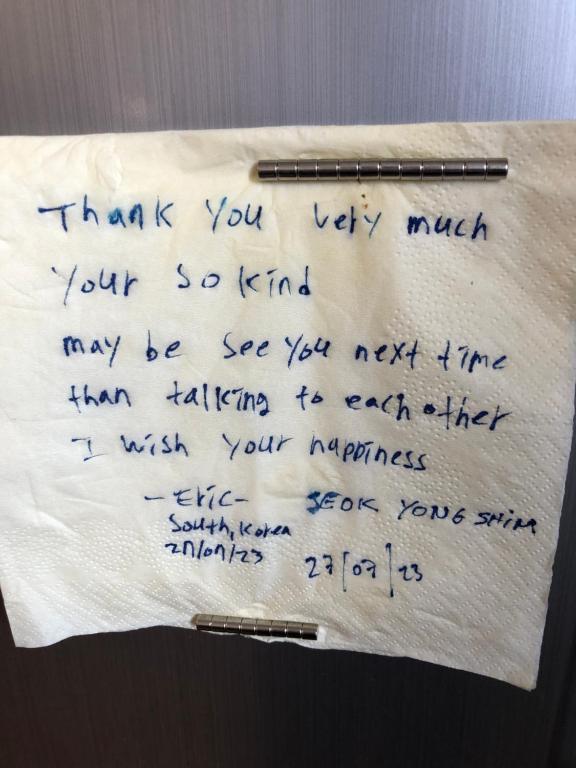 Thank you very much
your so kind
may be see you next time
than talking to each other
I wish your happiness
- Eric -
South, Korea
27/07/23
SEOK YONG SHIM
27/07/23